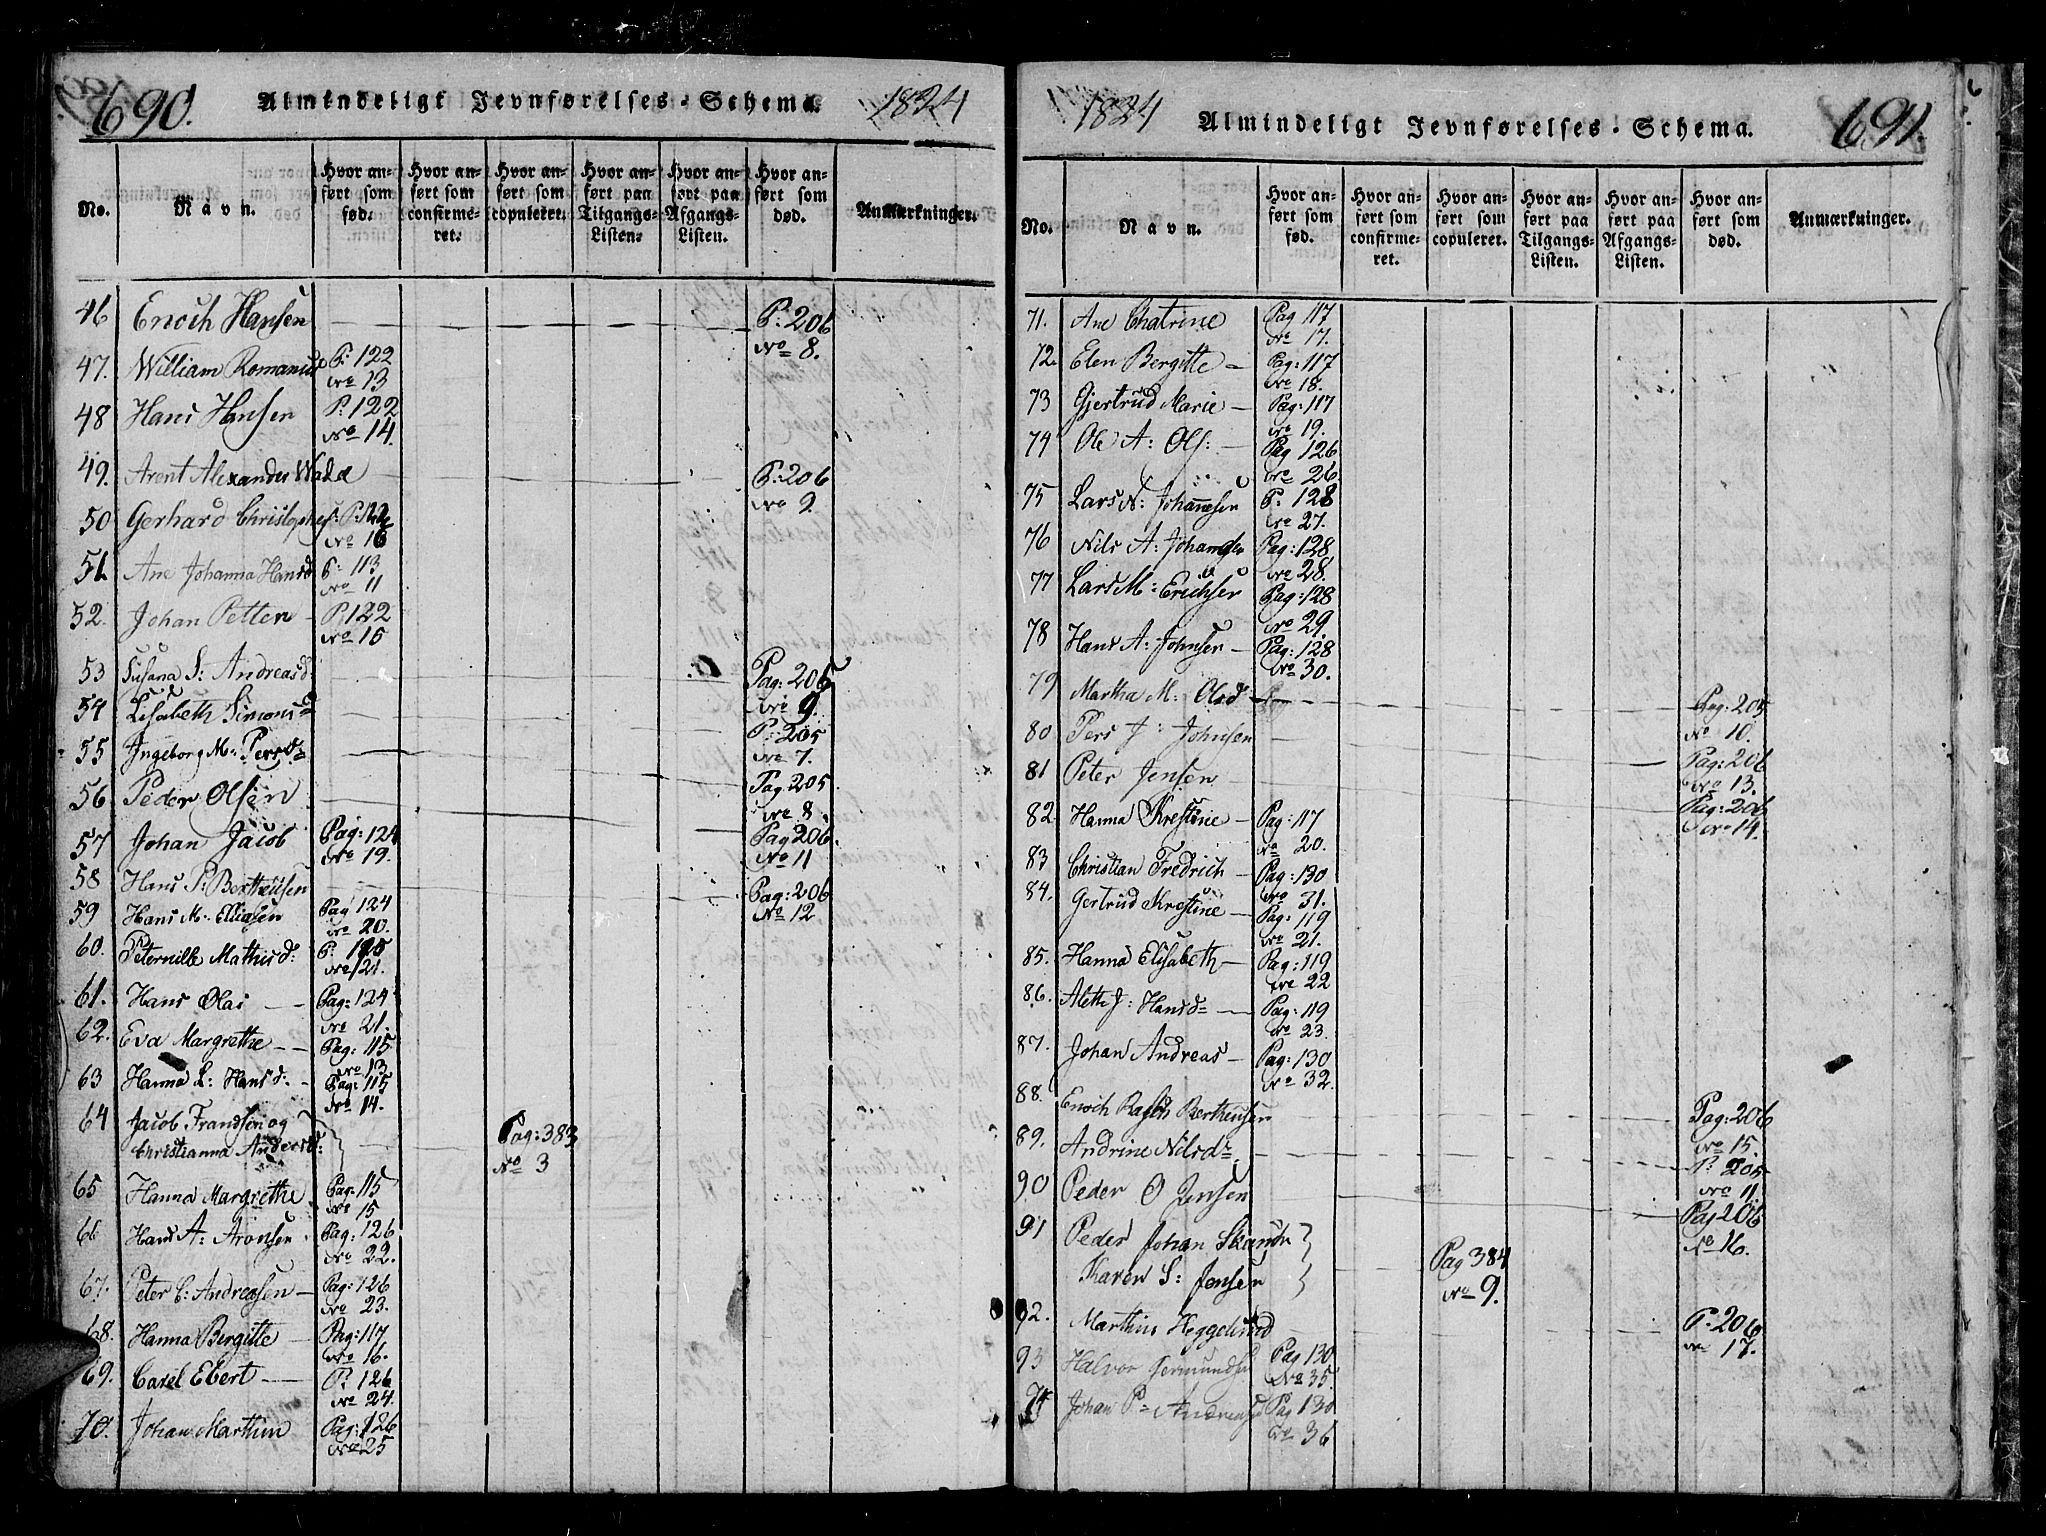 690.
Almindeligt Jevnførelses-Schema. 1824
No. Navn. Hvor anført som fød. Hvor anført som confirmeret. Hvor anført som copuleret. Hvor anført paa Tilgangs-Listen. Hvor anført paa Afgangs-Listen. Hvor anført som død. Anmærkninger.
46 Enoch Hansen P: 206
No 8.
47. William Romanus P: 122
No 13
48 Hans Hansen P: 122
No 14.
49. Arent Alexander P: 206
No 9.
50 Gerhard Christopher P: 122
No 16
51 Ane Johanna Hansd P: 113
No 11
52. Johan Petter P: 122
No 15
53 Susana S: Andreasd: Pag: 205
No 9.
54 Lisabeth Simonsd
P: 205
55 Ingeborg M: Persd No 7.
Pag 205
56 Peder Olsen No 8.
57 Johan Jacob Pag: 124 Pag 206
No 19. No 11
58 Hans P: Bertheusen Pag: 206
59 Hans M: Eliasen Pag 124 No 12
No 20.
60. Peternille Mathisd: P: 115
No 12.
61. Hans Olai Pag: 124
No 21.
62. Eva Margrethe Pag: 115
No 13
63 Hanna L: Hansd: Pag: 115
No 14.
64 Jacob Frandsen og Pag: 383
Christianna Andersd: No 3
65 Hanna Margrethe Pag: 115
No 15
66 Hans A: Aronsen Pag: 126
No 22.
67. Peter C: Andreasen Pag: 126
No 23.
68. Hanna Bergitte Pag: 117
No 16.
69. Carel Ebert P: 126
No 24.
70. Johan Marthin Pag: 126
No 25
1824 Almindeligt Jevnførelses-Schema. 691.
No. Navn. Hvor anført som fød. Hvor anført som confirmeret. Hvor anført som copuleret. Hvor anført paa Tilgangs-Listen. Hvor anført paa Afgangs-Listen. Hvor anført som død. Anmærkninger.
71. Ane Chatrine Pag 117
No 17.
72. Elen Bergitte Pag: 117
No 18.
73 Gjertrud Marie Pag: 117
No 19.
74 Ole A: Ols: Pag 126
No 26.
75 Lars N: Johannesen P: 128
No 27.
76 Nils A: Johansen Pag: 128
No 28.
77 Lars M: Erichsen Pag: 128
No 29.
78 Hans A: Johnsen Pag: 128
No 30.
79 Martha M: Olsd Pag: 205
No 10.
80 Pers J: Johnsen Pag: 206
No 13.
81 Peter Jensen Pag: 206
No 14.
82. Hanna Krestine Pag: 117
No 20.
83 Christian Fredrich Pag: 130
No 31.
84. Gertrud Krestine Pag: 119
No 21.
85. Hanna Elisabeth Pag: 119
No 22
86. Aleth J: Hansd Pag: 119
No 23.
87. Johan Andreas Pag: 130
No 32.
88. Enoch Bertheusen Pag: 206
No 15.
89. Andrine Nilsd P: 205
No 11.
90 Peder O Jensen Pag 206
No 16.
91 Peder Johan
Karen S: Jensen Pag 384
No 9.
92. Marthin Heggelund P: 206
No 17.
93 Halvor Germundsen Pag 130
No 35.
94 Johan P: Andreas Pag 130
No 36